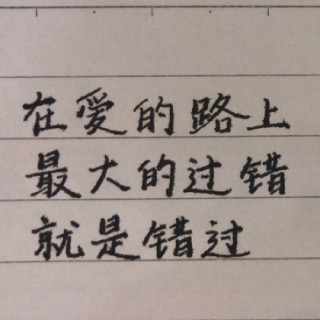 在愛的路上
最大的过错
就是错过